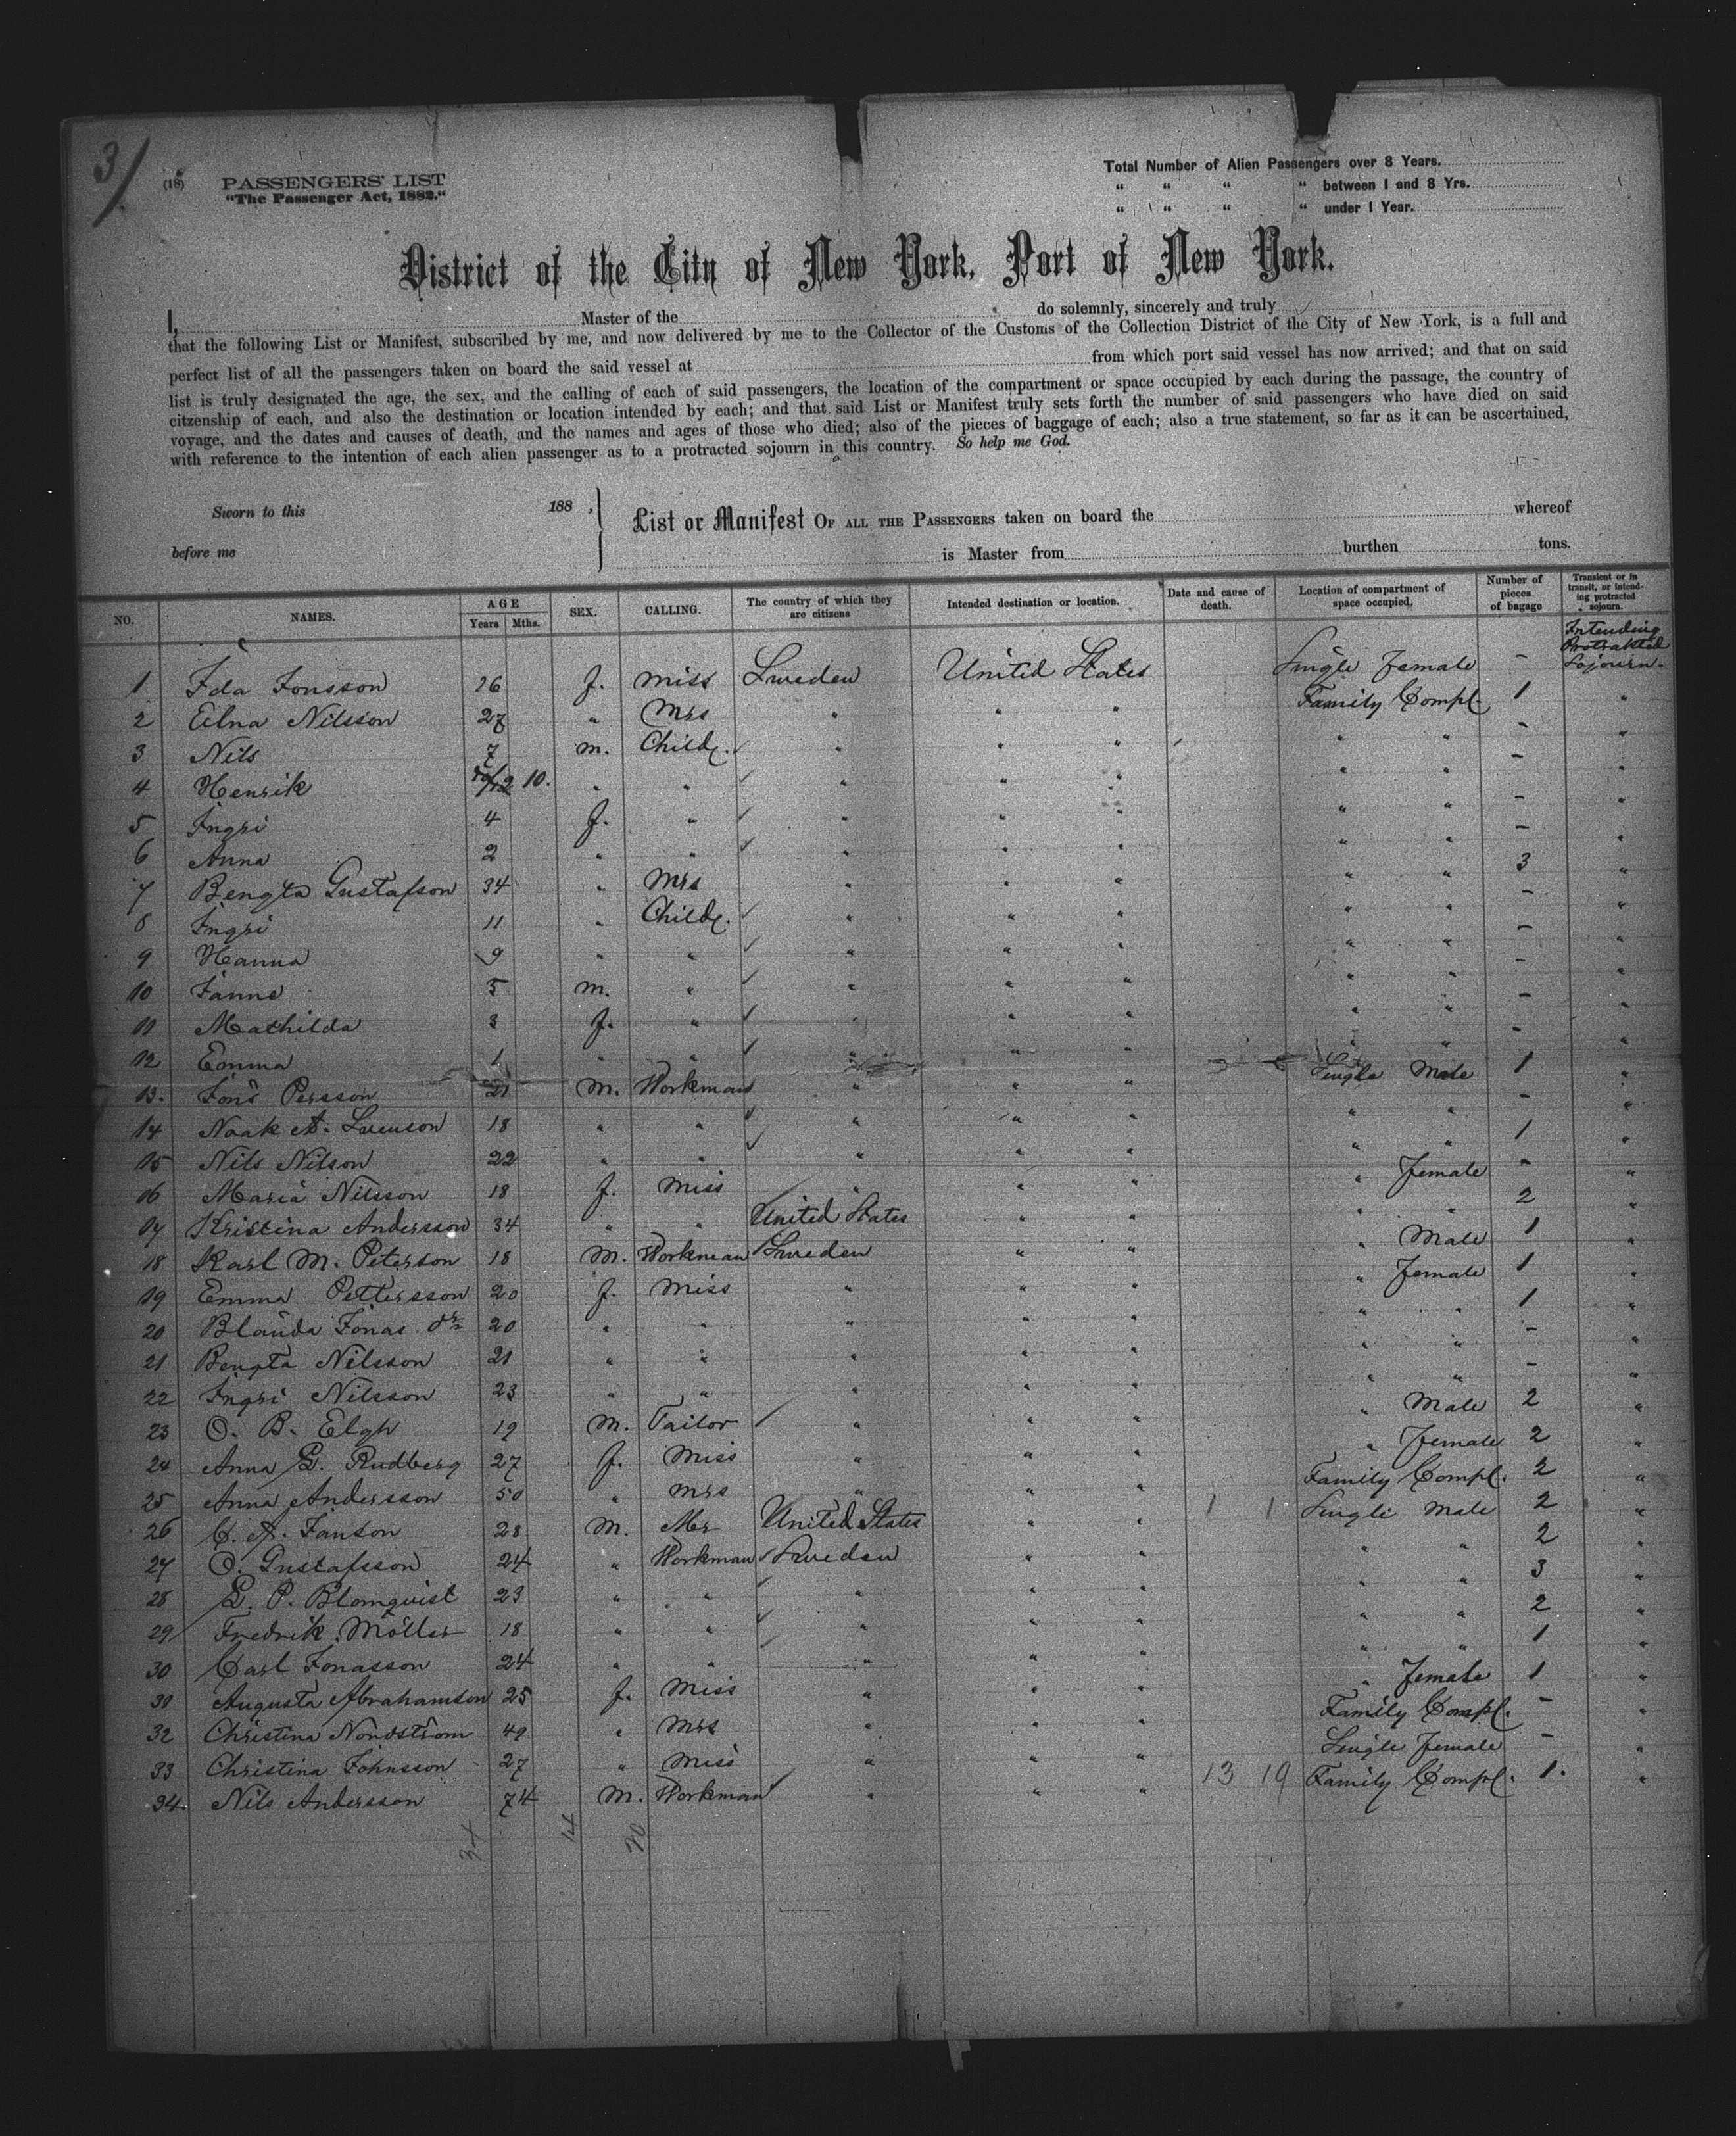 31
(18) PASSENGERS' LIST
"The Passenger Act, 1882."
Total Number of Alien Passengers over 8 Years.
" " " " between 1 and 8 Yrs.
" " " " under 1 Year.
District of the City of New York, Port of New York.
I, Master of the do solemnly, sincerely and truly
that the following List or Manifest, subscribed by me, and now delivered by me to the Collector of the Customs of the Collection District of the City of New York, is a full and
perfect list of all the passengers taken on board the said vessel at from which port said vessel has now arrived; and that on said
list is truly designated the age, the sex, and the calling of each of said passengers, the location of the compartment or space occupied by each during the passage, the country of
citzenship of each, and also the destination or location intended by each; and that said List or Manifest truly sets forth the number of said passengers who have died on said
voyage, and the dates and causes of death, and the names and ages of those who died; also of the pieces of baggage of each; also a true statement, so far as it can be ascertained,
with reference to the intention of each alien passenger as to a protracted sojourn in this country. So help me God.
Sworn to this 188 .
before me
List or Manifest OF ALL THE PASSENGERS taken on board the whereof
is Master from burthen tons.
NO. NAMES. AGE Years Mths. SEX. CALLING. The country of which they are citizens Intended destination or location. Date and cause of death. Location of compartment of space occupied. Number of pieces of bagage Transient or in transit, or intending protracted sojourn.
1 Ida Jonsson 26 f. Miss Sweden United States Single Female - Intending Protrakted Sojourn.
2 Elna Nilsson 27 " Mrs " " " Family Compl. 1 "
3 Nils 7 m. Childr. " " " " " - "
4 Henrik 10. " " " " " " " - "
5 Ingri 4 f. " " " " " " - "
6 Anna 2 " " " " " " " - "
7 Bengta Gustafson 34 " Mrs " " " " " 3 "
8 Ingri 11 " Childr. " " " " " - "
9 Hanna 9 " " " " " " " - "
10 Janne 5 m. " " " " " " - "
11 Mathilda 3 f. " " " " " " - "
12 Emma 1 " " " " " " " - "
13. Jöns Persson 21 M. Workman " " " Single Male 1 "
14 Noak A. Svenson 18 " " " " " " " - "
15 Nils Nilson 22 " " " " " " " 1 "
16 Maria Nilsson 18 f. Miss " " " " female - "
17 Kristina Andersson 34 " " United States " " " " 2 "
18 Karl M. Peterson 18 M. Workman Sweden " " " Male 1 "
19 Emma Pettersson 20 f. Miss " " " " female 1 "
20 Blanda Jonas. dr 20 " " " " " " " 1 "
21 Bengta Nilsson 21 " " " " " " " - "
22 Ingri Nilsson 23 " " " " " " " - "
23 O. B. Elgh 19 M. Tailor " " " " Male 2 "
24 Anna L. Rudberg 27 f. Miss " " " " female 2 "
25 Anna Andersson 50 " Mrs " " " Family Compl. 2 "
26 C. A. Janson 28 M. Mr United States " " 1 1 Single Male 2 "
27 O. Gustafsson 24 " Workman Sweden " " " " 2 "
28 L. P. Blomqvist 23 " " " " " " " 3 "
29 Fredrik Möller 18 " " " " " " " 2 "
30 Carl Jonasson 24 " " " " " " " 1 "
31 Augusta Abrahamson 25 f. Miss " " " " female 1 "
32 Christina Nordström 49 " Mrs " " " Family Compl. - "
33 Christina Johnsson 27 " Miss " " " Single female - "
34. Nils Andersson 74 M. Workman " " " 13 19 Family Compl. 1. "
34 14 20